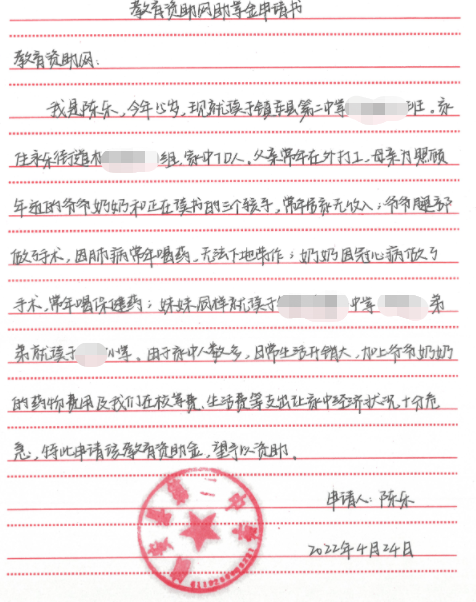 教育资助网助学金申请书
教育资助网:
我是陈乐,今年15岁,现就读于镇安县第二中学 班。家
住永乐街道 组,家中10人。父亲常年在外打工,母亲为照顾
年迈的爷爷奶奶和正在读书的三个孩子,常年在家无收入;爷爷腿部
做过手术,因肺病常年喝药,无法下地劳作;奶奶因冠心病做了
手术,常年喝保健药;妹妹同样就读于 中学 弟
弟就读于 小学。由于家中人数多,日常生活开销大,加上爷爷奶奶
的药物费用及我们在校学费、生活费等支出让家中经济状况十分危
急,特此申请该教育资助金,望予以资助。
申请人:陈乐
2022年4月24日
镇安县第二中学